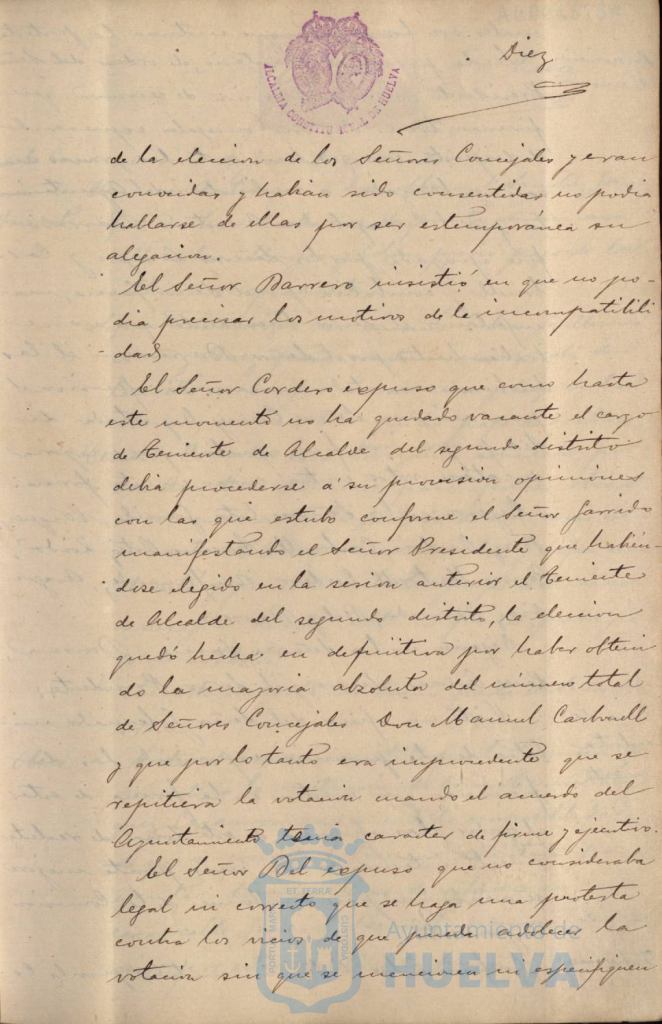 ALCALDIA CONSTITUCIONAL DE HUELVA
Diez
de la eleccion de los Señores Concejales y eran
conocidas y habian sido consentidas no podia
hablarse de ellas por ser estemporánea su
alegacion.
El Señor Barrero insistió en que no po-
dia precisar los motivos de la incompatibili
dad
El Señor Cordero expuso que como hasta
este momento no ha quedado vacante el cargo
de Teniente de Alcalde del segundo distrito
debia procederse á su provision opiniones
con las que estubo conforme el Señor Garrido
manifestando el Señor Presidente que habien-
dose elegido en la sesion anterior el Teniente
de Alcalde del segundo distrito, la eleccion
quedó hecha en definitiva por haber obteni
do la mayoria absoluta del número total
de Señores Concejales Don Manuel Carbonell
y que por lo tanto era improcedente que se
repitiera la votacion cuando el acuerdo del
Ayuntamiento tenia caracter de firme y ejecutivo.
El Señor Bel expuso que no consideraba
legal ni correcto que se haga una protesta
contra los vicios de que pueda adolecer la
votacion sin que se mencionen ni especifiquen
Ayuntamiento de
HUELVA
PORTUS MARIS ET TERRA CUSTODIA